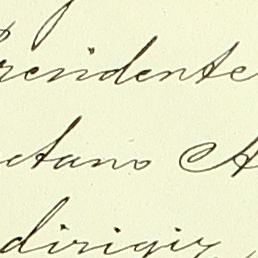 residente
etano A
dirigir